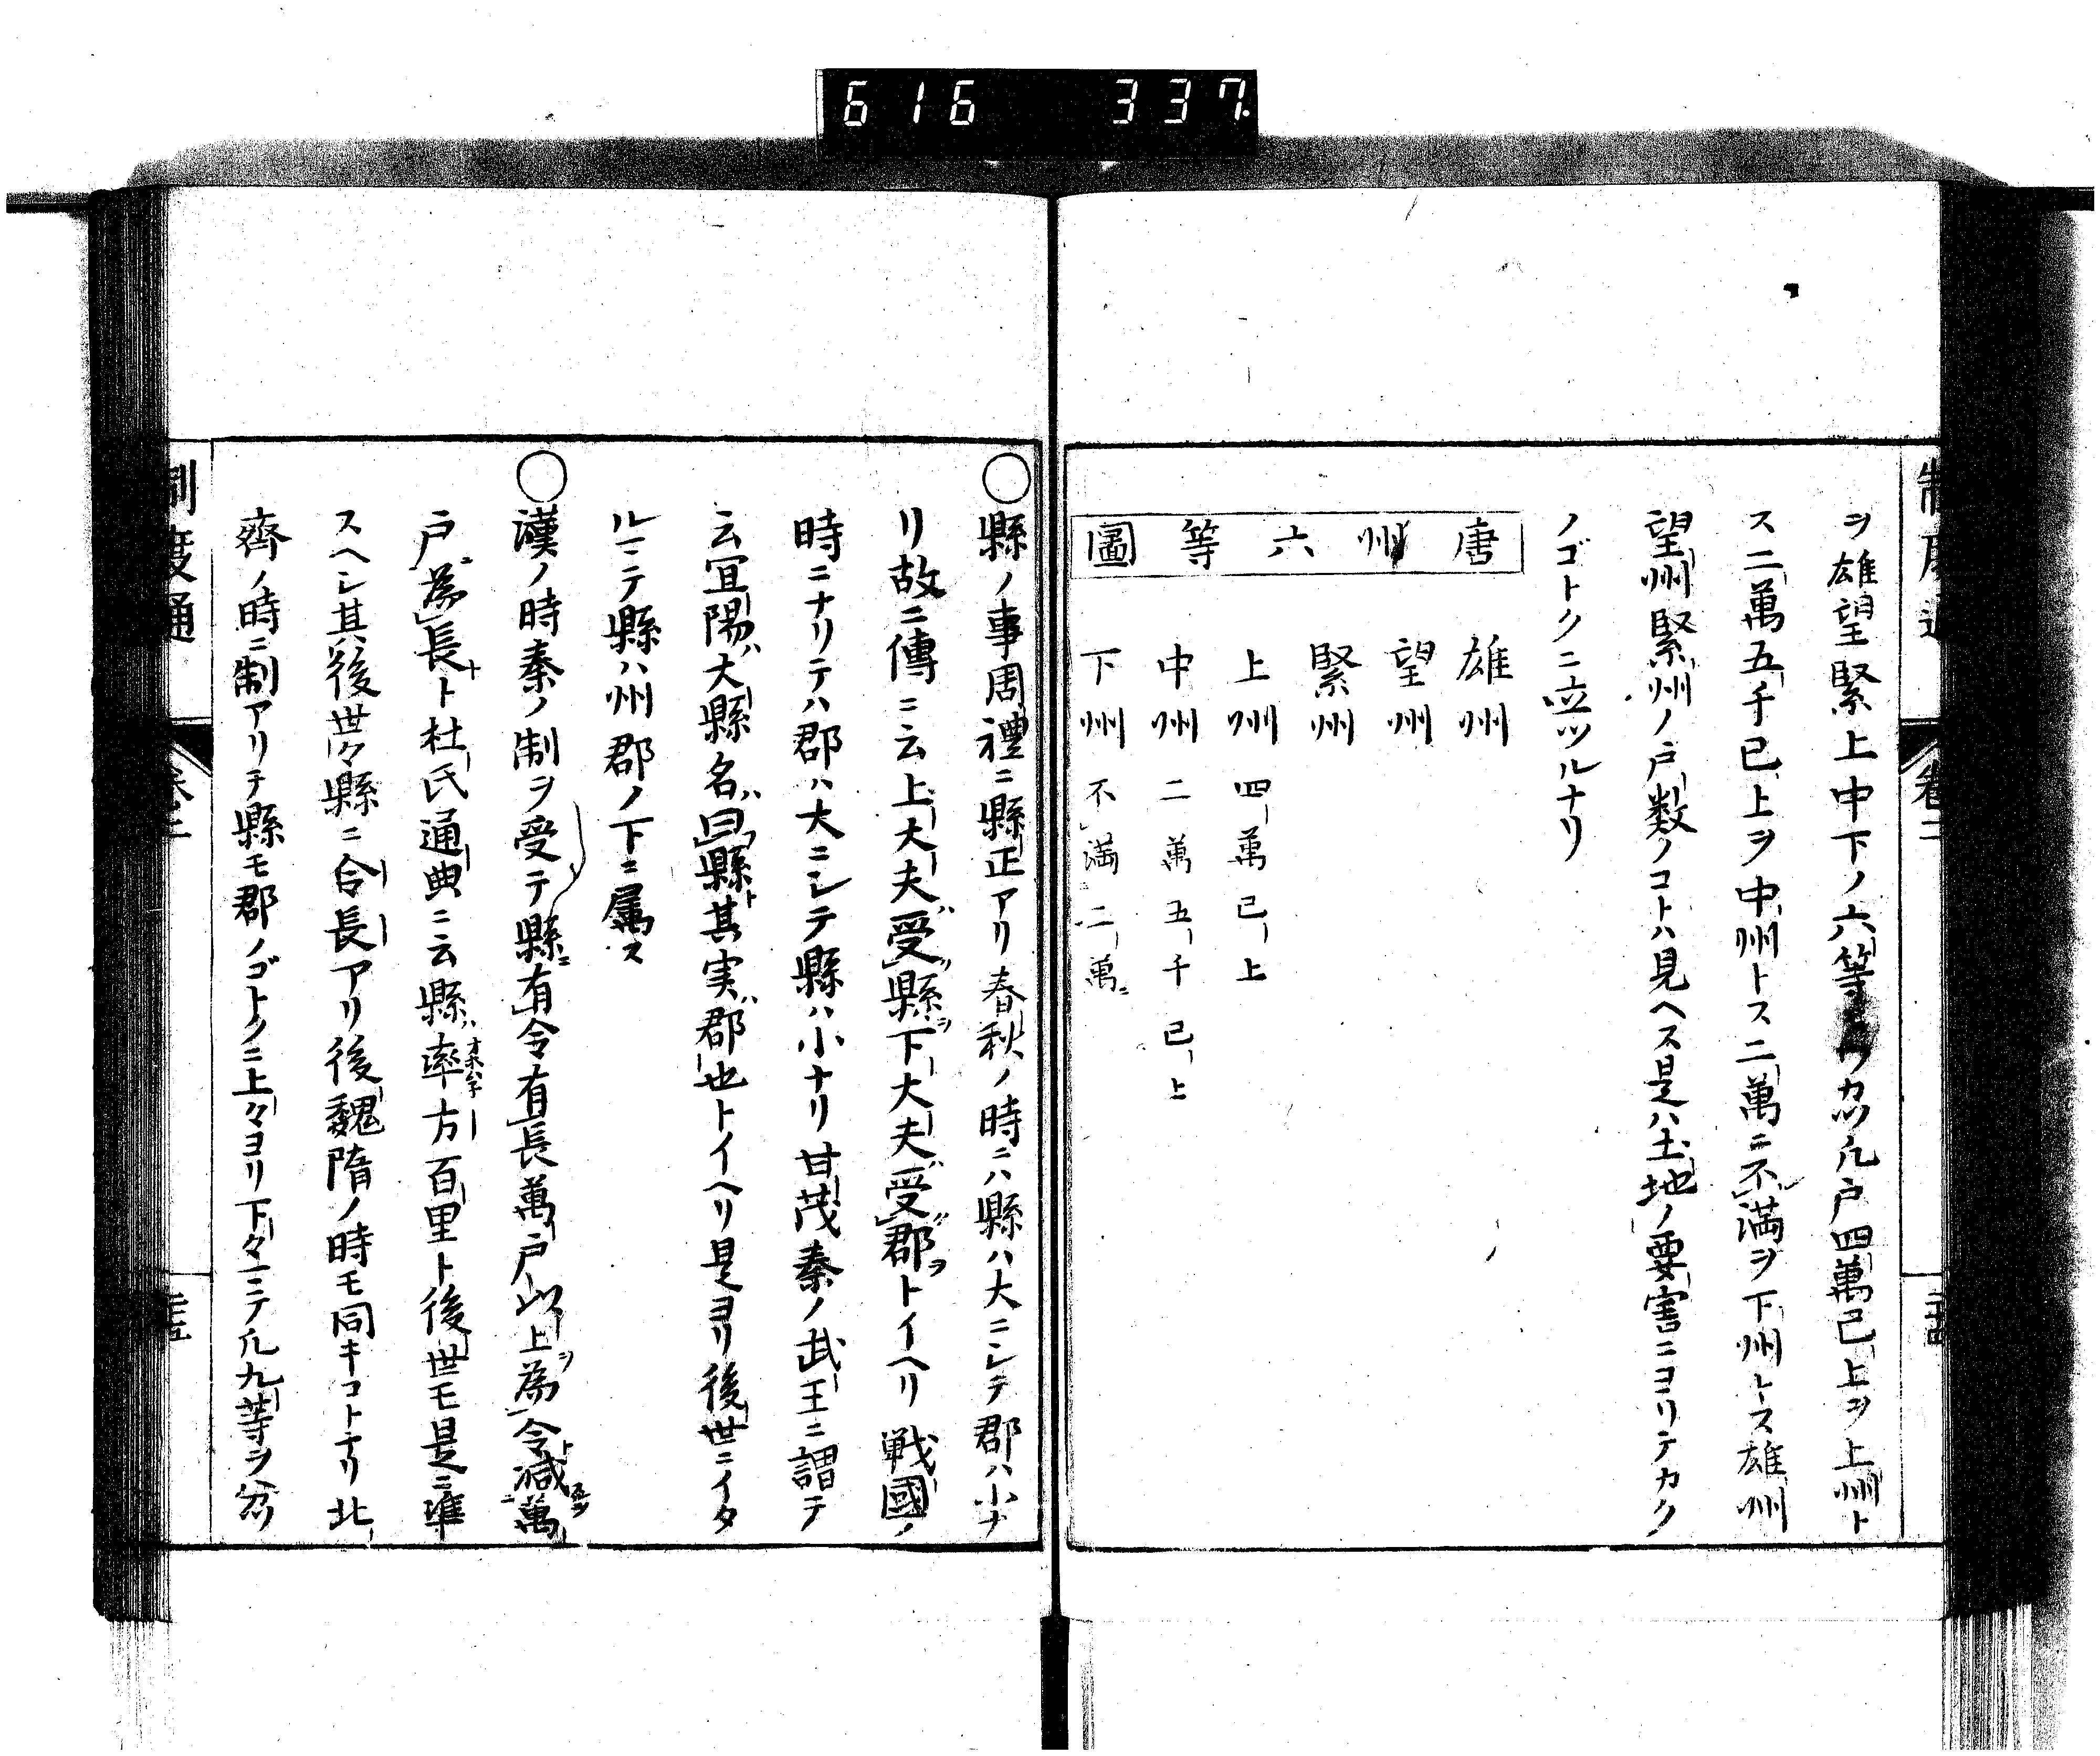 616 337.
制度通 卷二
ヲ雄望緊上中下ノ六等ニワカツ凡戸四萬已上ヲ上州ト
ス二萬五千已上ヲ中州トス二萬ニ不満ヲ下州トス雄州
望州緊州ノ戸数ノコトハ見ヘス是ハ土地ノ要害ニヨリテカク
ノゴトクニ立ツルナリ
唐州六等圖
雄州
望州
緊州
上州 四萬已上
中州 二萬五千已上
下州 不満二萬ニ
〇縣ノ事周禮ニ縣正アリ春秋ノ時ニハ縣ハ大ニシテ郡ハ小ナ
リ故ニ傳ニ云上大夫ハ受縣ヲ下大夫ハ受郡ヲトイヘリ戦國ノ
時ニナリテハ郡ハ大ニシテ縣ハ小ナリ甘茂秦ノ武王ニ謂テ
云宜陽ハ大縣名ハ曰縣ト其実ハ郡也トイヘリ是ヨリ後世ニイタ
ルマテ縣ハ州郡ノ下ニ属ス
〇漢ノ時秦ノ制ヲ受テ縣ニ有令有長萬戸以上ヲ為令ト減萬
戸ニ為長ト杜氏通典ニ云縣ハ率方百里ト後世モ是ニ準
スヘシ其後世々縣ニ令長アリ後魏隋ノ時モ同キコトナリ北
齊ノ時ニ制アリテ縣モ郡ノゴトクニ上々ヨリ下々マテ凡九等ヲ分ツ
制度通